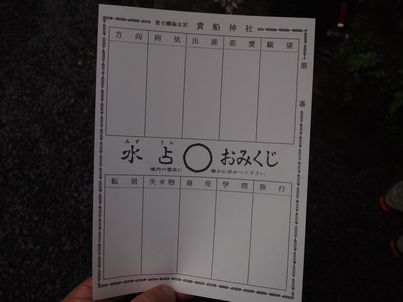 貴布禰総本宮 貴船神社
方向 病気 出産 恋愛 願望
第 番
みず うら
水占 おみくじ
境内の霊泉に 静かに浮かべて下さい
転居 失せ物 商売 学問 旅行